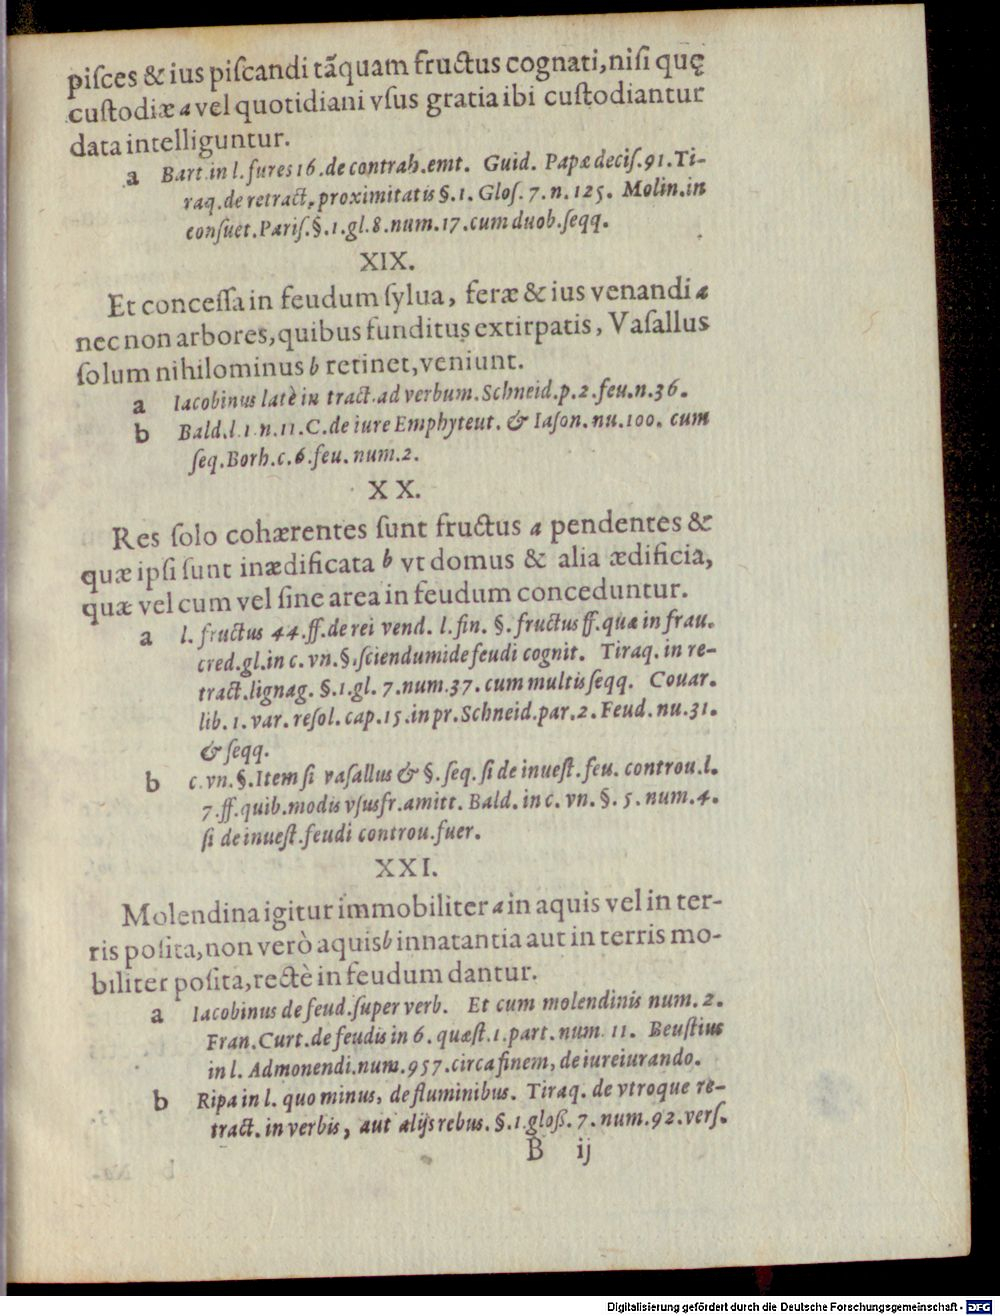 piſces & ius piſcandi tãquam fructus cognati, niſi quę
cuſtodiæ a vel quotidiani vſus gratia ibi cuſtodiantur
data intelliguntur.
a Bart. in l. fures 16. de contrah. emt. Guid. Papæ deciſ. 91. Ti-
raq. de retract. proximitatis §. 1. Gloſ. 7. n. 125. Molin. in
conſuet. Pariſ. §. 1. gl. 8. num. 17. cum duob. ſeqq.
XIX.
Et conceſſa in feudum ſylua, feræ & ius venandi a
nec non arbores, quibus funditus extirpatis, Vaſallus
ſolum nihilominus b retinet, veniunt.
a Iacobinus latè in tract. ad verbum. Schneid. p. 2. feu. n. 36.
b Bald. l. 1. n. 11. C. de iure Emphyteut. & Iaſon. nu. 100. cum
ſeq. Borh. c. 6. feu. num. 2.
XX.
Res ſolo cohærentes ſunt fructus a pendentes &
quæ ipſi ſunt inædificata b vt domus & alia ædificia,
quæ vel cum vel ſine area in feudum conceduntur.
a l. fructus 44. ff. de rei vend. l. fin. §. fructus ff. quæ in frau.
cred. gl. in c. vn. §. sciendum ide feudi cognit. Tiraq. in re-
tract. lignag. §. 1. gl. 7. num. 37. cum multis ſeqq. Couar.
lib. 1. var. reſol. cap. 15. in pr. Schneid. par. 2. Feud. nu. 31.
& ſeqq.
b c. vn. §. Item ſi vaſallus & §. ſeq. ſi de inueſt. feu. controu. l.
7. ff. quib. modis vſusfr. amitt. Bald. in c. vn. §. 5. num. 4.
ſi de inueſt. feudi controu. fuer.
XXI.
Molendina igitur immobiliter a in aquis vel in ter-
ris poſita, non verò aquis b innatantia aut in terris mo-
biliter poſita, rectè in feudum dantur.
a Iacobinus de feud. ſuper verb. Et cum molendinis num. 2.
Fran. Curt. de feudis in 6. quæſt. 1. part. num. 11. Beuſtius
in l. Admonendi. num. 957. circa finem, de iureiurando.
b Ripa in l. quo minus, de fluminibus. Tiraq. de vtroque re-
tract. in verbis, aut alijs rebus. §. 1. gloß. 7. num. 92. verſ.
B ij
Digitalisierung gefördert durch die Deutsche Forschungsgemeinschaft - DFG